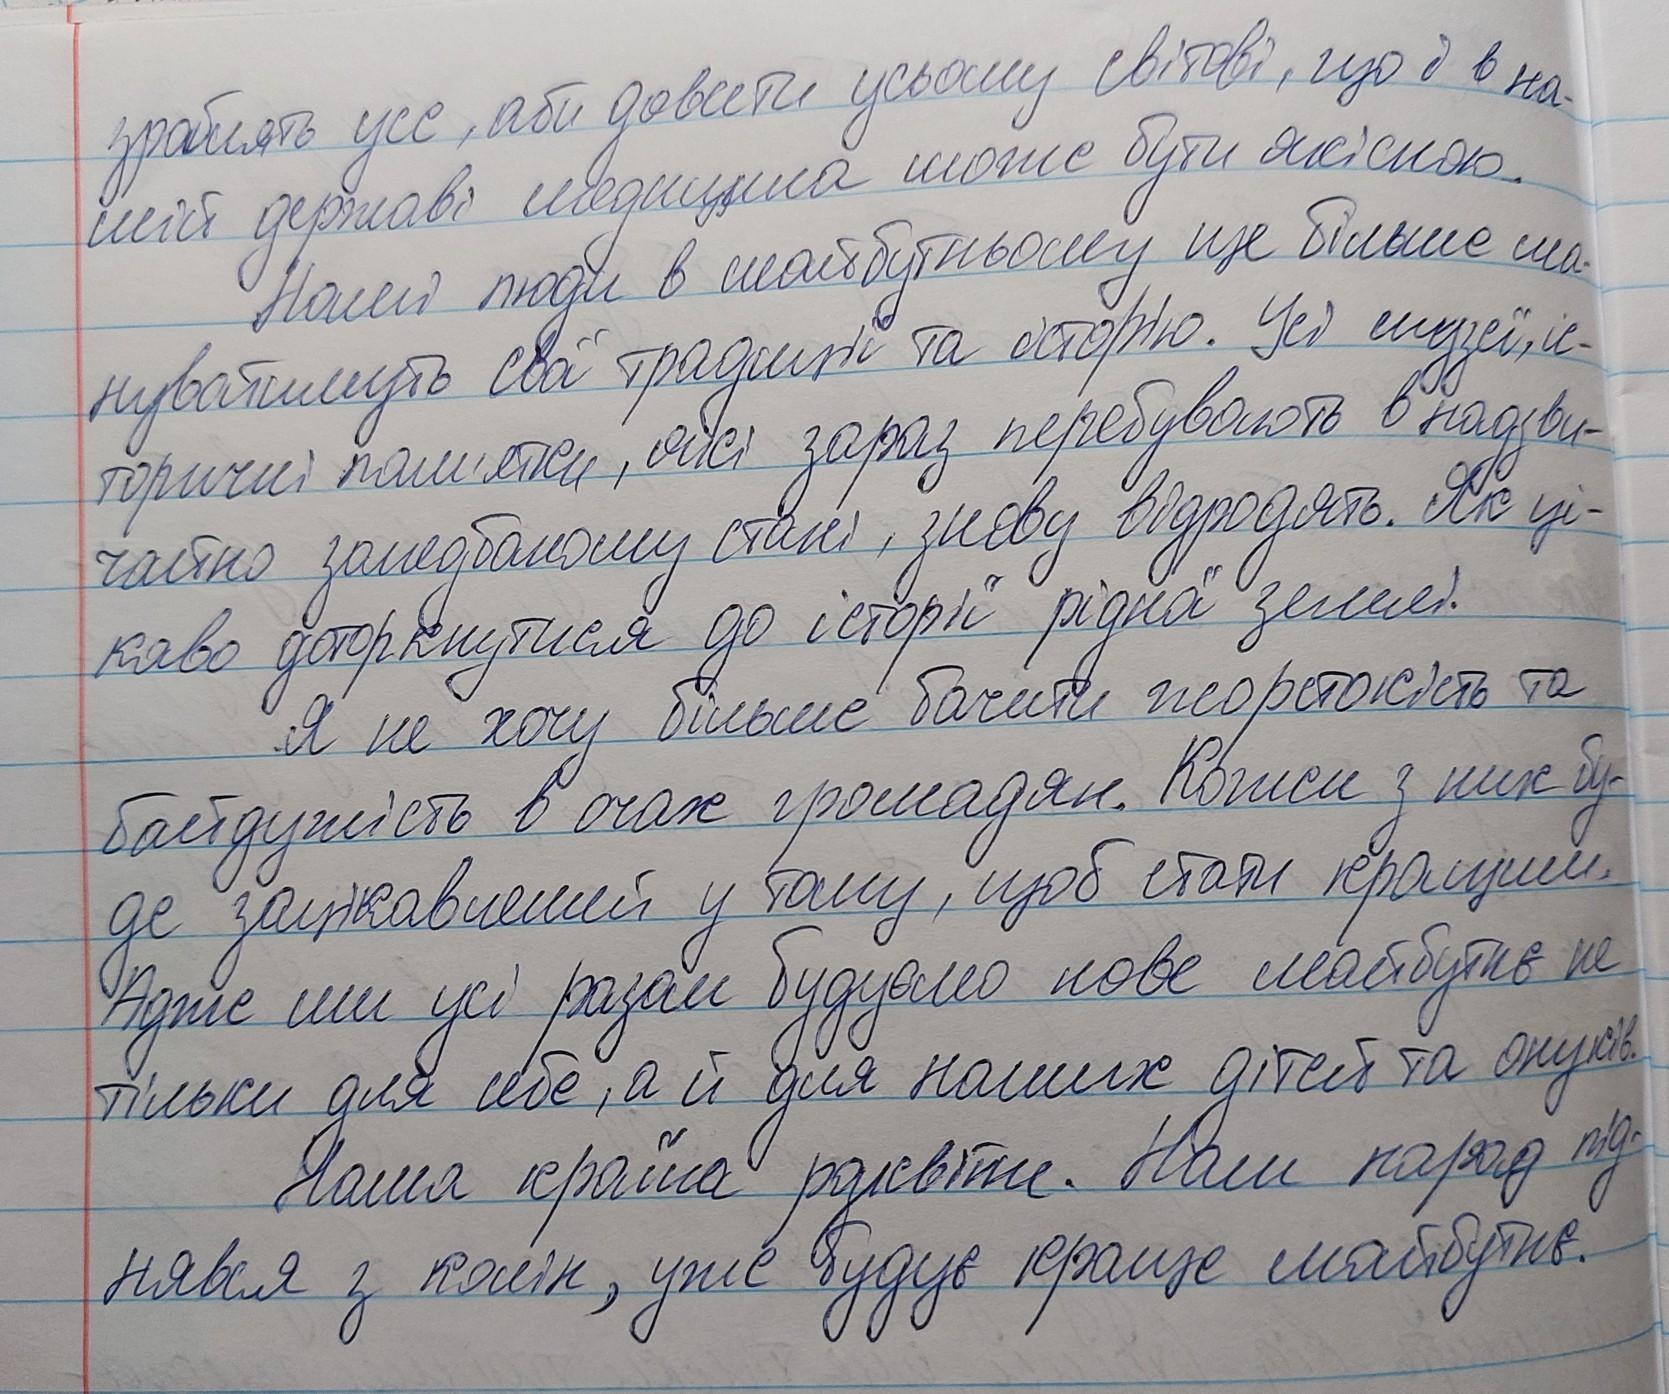 зроблять усе, аби довести усьому світові, що й в на-
шій державі медицина може бути якісною.
Наші люди в майбутньому ще більше ша-
нуватимуть свої традиції та історію. Усі музеї, іс-
торичні пам'ятки, які зараз перебувають в надзви-
чайно занедбаному стані, знову відродять. Як ці-
каво доторкнутися до історії рідної землі.
Я не хочу більше бачити жорстокість та
байдужість в очах громадян. Кожен з них бу-
де зацікавлений у тому, щоб стати кращим.
Адже ми усі разом будуємо нове майбутнє не
тільки для себе, а й для наших дітей та онуків.
Наша країна розквітне. Наш народ під-
нявся з колін, уже будує краще майбутнє.